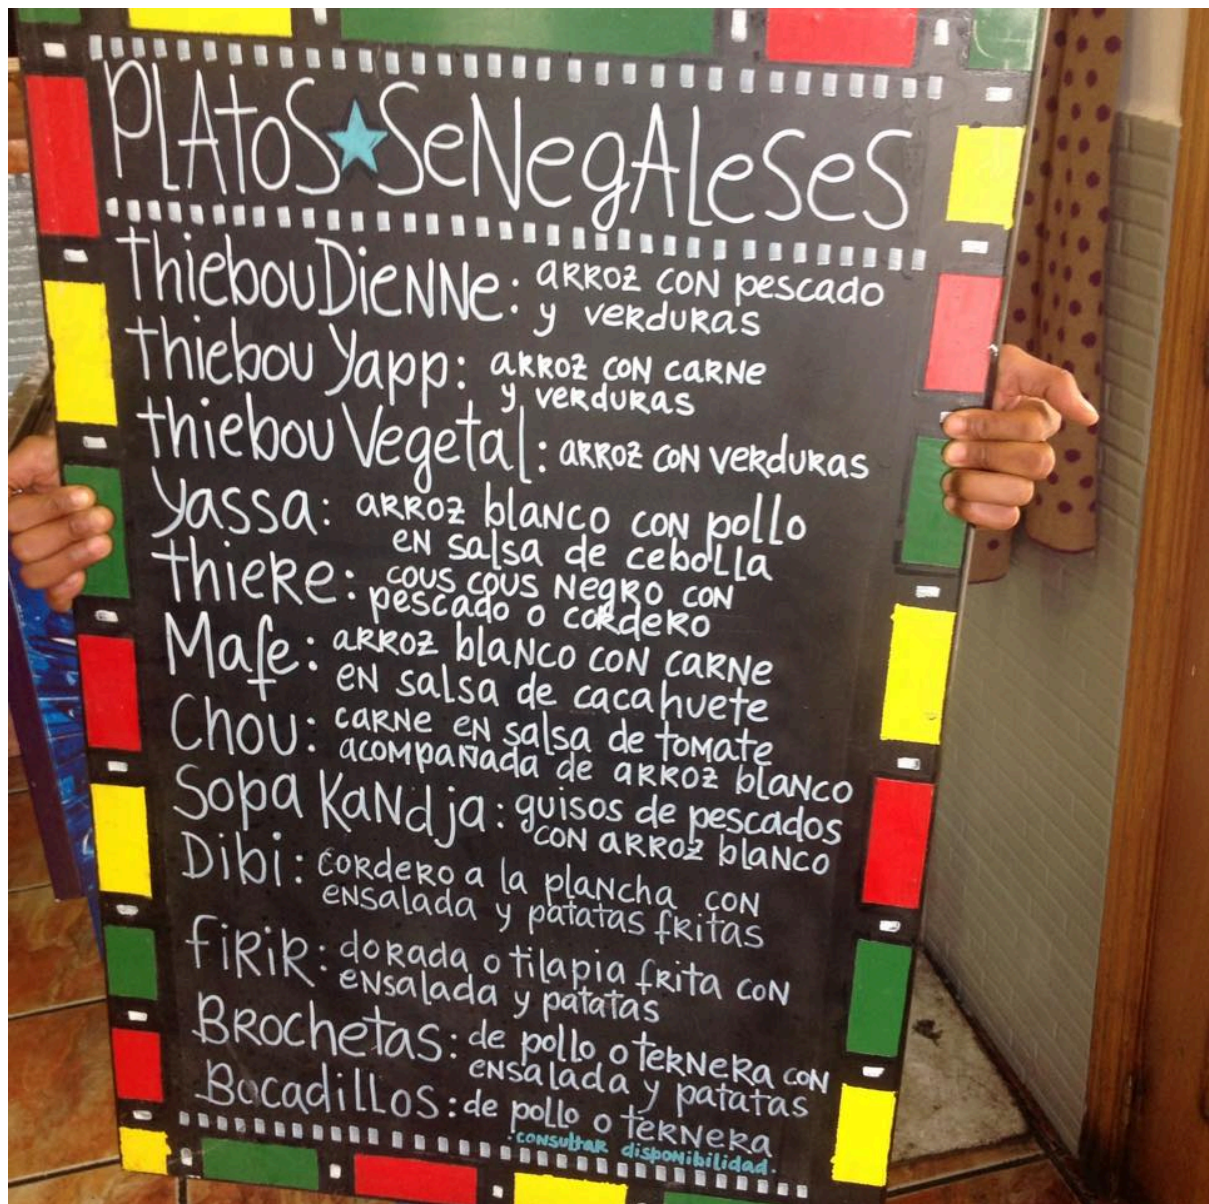 PLAtoS★SeNegALeSeS
thiebouDieNNe: aRRoz coN pescado
y veRduRas
thiebou Yapp: aRRoz coN caRNe
y veRduRas
thiebou Vegetal: aRRoz coN veRduRas
Yassa: aRRoz blaNco coN pollo
eN salsa de cebolla
thieRe: cous cous NegRo coN
pescado o coRdeRo
Mafe: aRRoz blaNco coN caRNe
eN salsa de cacahuete
Chou: caRNe eN salsa de toMate
acoMpañada de aRRoz blaNco
Sopa KaNdja: guisos de pescados
coN aRRoz blaNco
Dibi: coRdeRo a la plaNcha coN
eNsalada y patatas fRitas
fiRiR: doRada o tilapia fRita coN
eNsalada y patatas
BRochetas: de pollo o teRNeRa coN
eNsalada y patatas
BocadilloS: de pollo o teRNeRa
·coNsultaR dispoNibilidad.